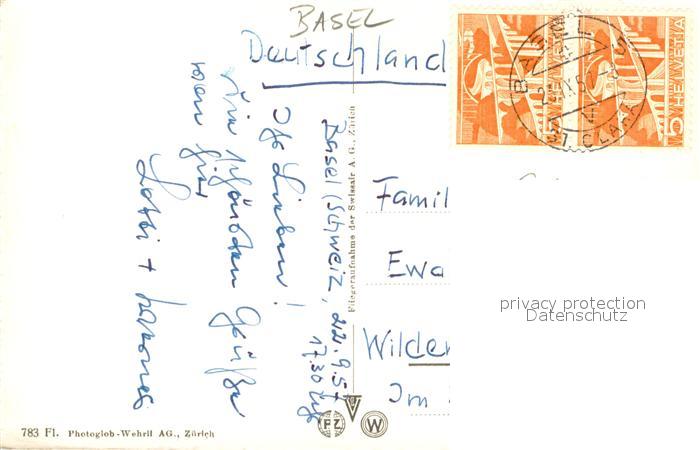 BASEL
Deutschland
Basel (Schweiz, 22.9.57
17.30 Uhr
Ihr Lieben!
Die schönsten Grüße
von
Lotti +
Famil
Ewa
Wilden
Im
Fliegeraufnahme der Swissair A. G., Zürich
783 Fl. Photoglob-Wehrli AG., Zürich
PZ
W
5 HELVETIA
BASEL 5
ST. CLARA
privacy protection
Datenschutz